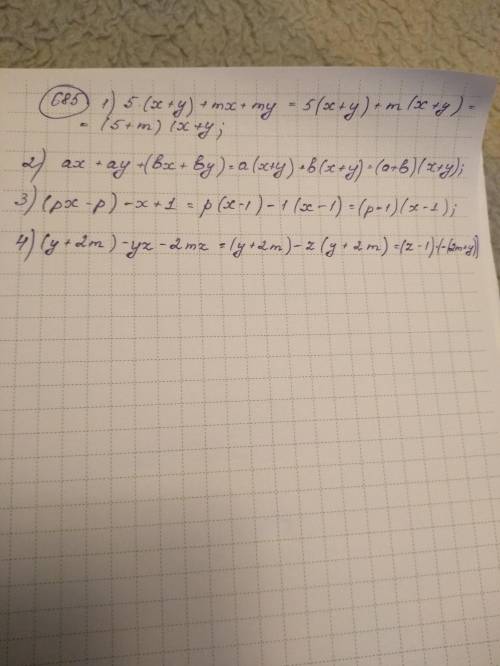 685 1) 5 (x+y) + mx + my = 5(x+y) + m (x+y) =
= (5+m) (x+y;
2) ax + ay + (bx + by) = a(x+y) + b(x+y) = (a+b)(x+y);
3) (px - p) - x + 1 = p(x-1) - 1(x-1) = (p-1)(x-1);
4) (y+2m) - yz - 2mz = (y+2m) - z(y+2m) = (z-1)·(-(2m+y))